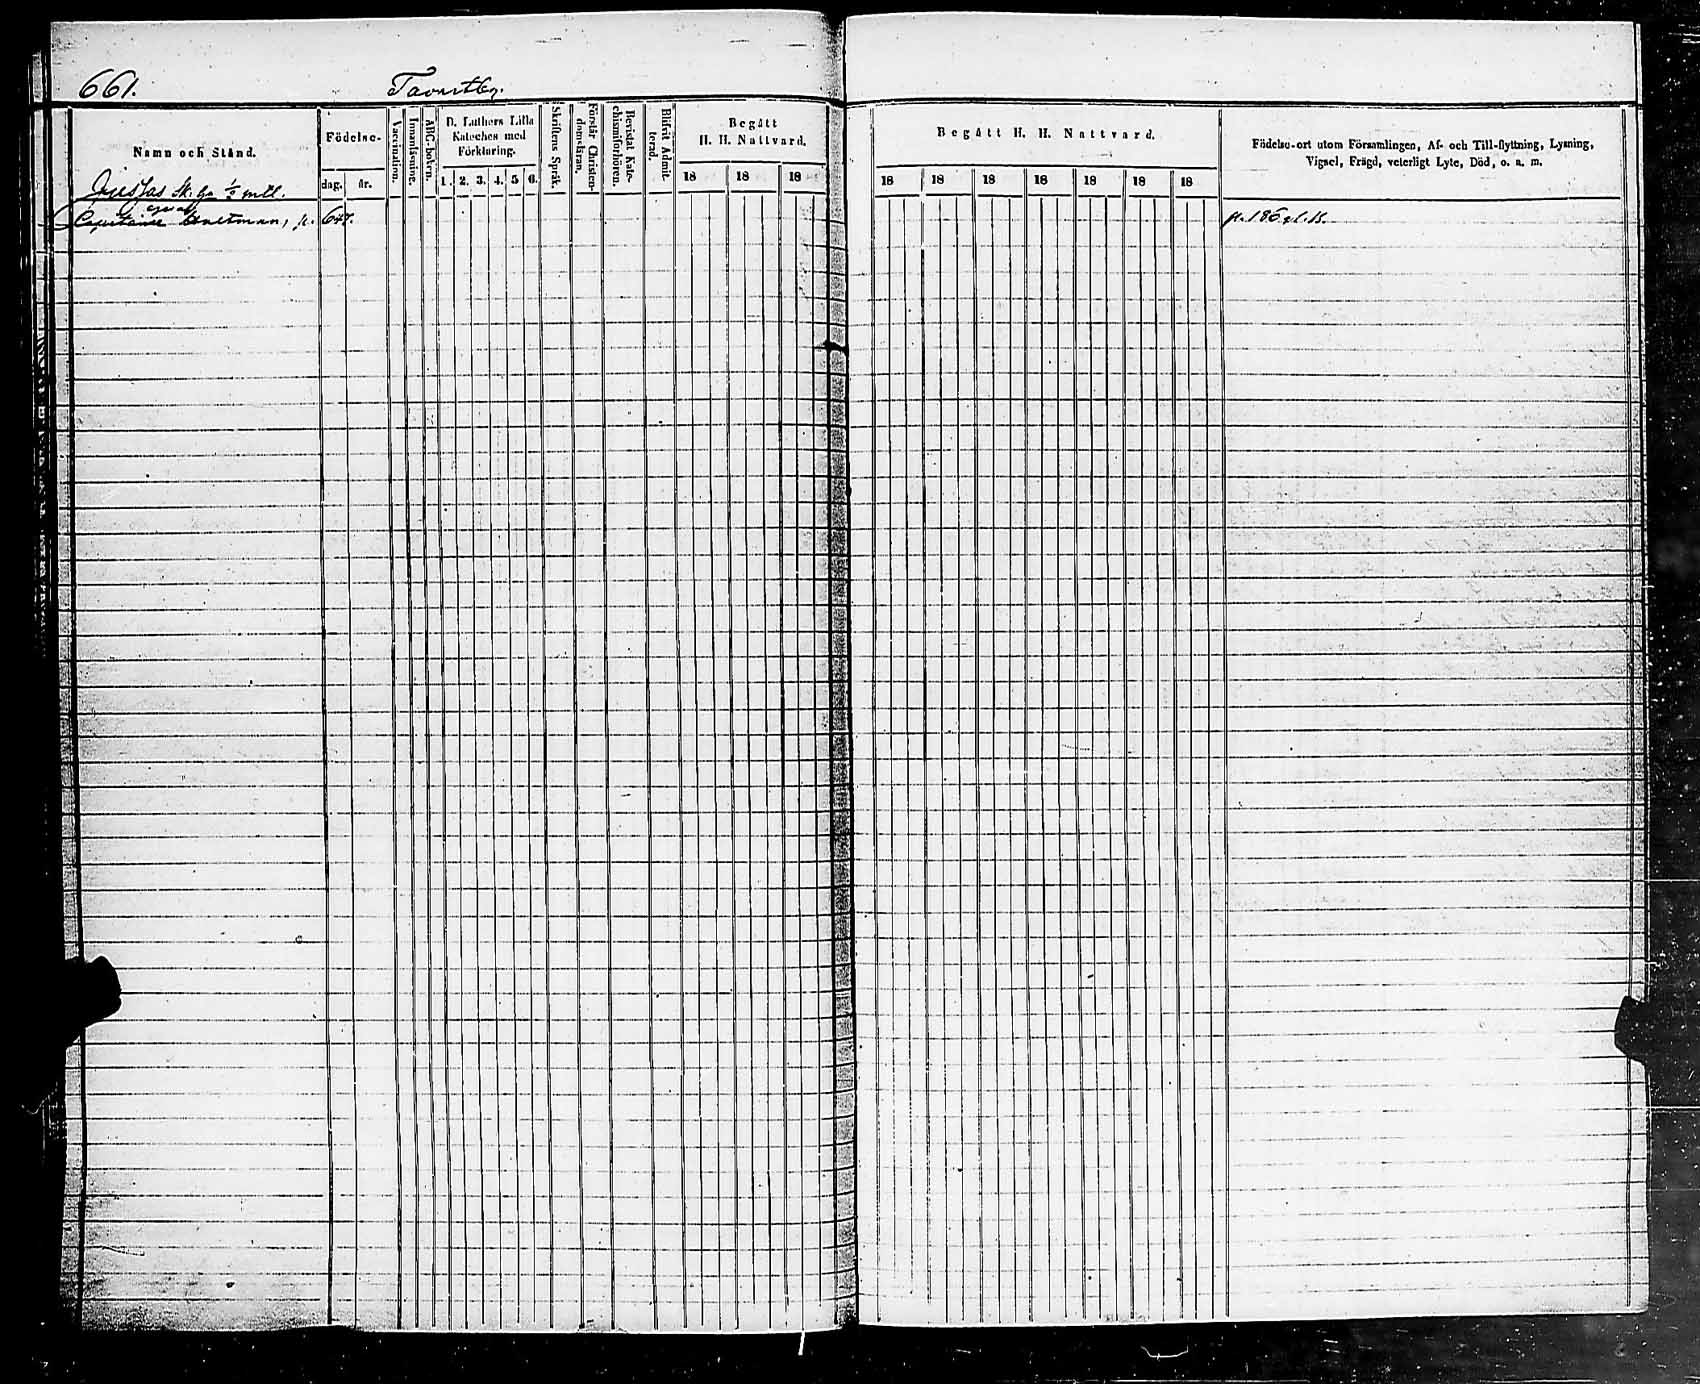 661. Tavastby.
Namn och Stånd.
Födelse-
dag. år.
Vaccination.
Innanläsning.
ABC-boken.
D. Luthers Lilla
Kateches med
Förklaring.
1. 2. 3. 4. 5 6.
Skriftens Språk.
Förstår Christen-
domsläran.
Bevistat Kate-
chismiförhören.
Blifvit Admit-
terad.
Begått
H. H. Nattvard.
18 18 18
Begått H. H. Nattvard.
18 18 18 18 18 18 18
Födelse-ort utom Församlingen, Af- och Till-flyttning, Lysning,
Vigsel, Frägd, veterligt Lyte, Död, o. s. m.
Sk. hn 1/2 mtl.
p. 647.
p. 186 gl. B.